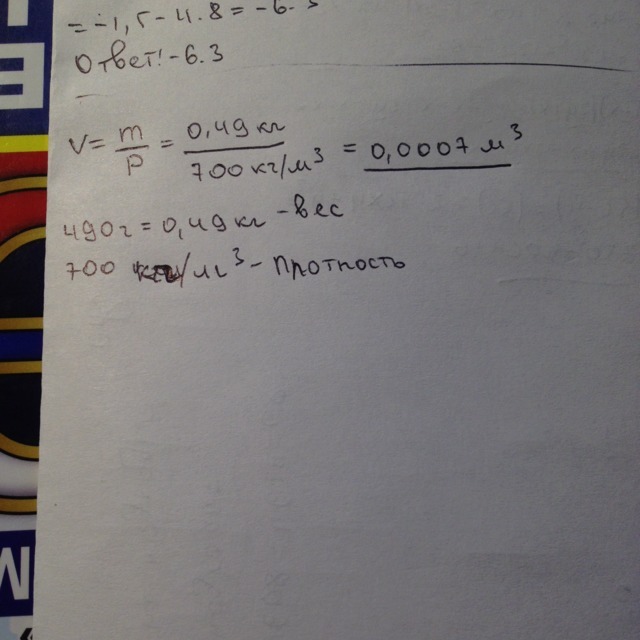 = -1,5 - 4.8 = -6.3
Ответ! -6.3
V = m/p = 0,49 кг / 700 кг/м³ = 0,0007 м³
490 г = 0,49 кг - вес
700 кг/м³ - плотность